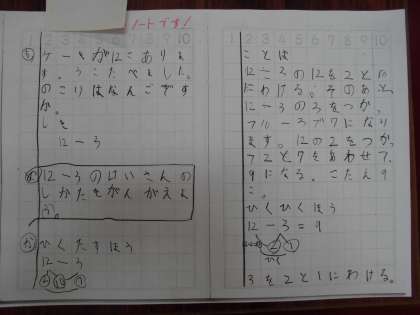 ノートです!
1 2 3 4 5 6 7 8 9 10
ケーキが12こありま
す。3こたべました。
のこりはなんこです
か。
しき
12-3
12-3のけいさんの
しかたをかんがえよ
う。
ひくたすほう
12-3
1 2 3 4 5 6 7 8 9 10
ことば
12-3の12を2と10
にわける。そのあと、
10-3の3をつか
10-3で7になり
ます。12の2をつか
2と7をあわせて、
9になる。こたえ9
こ。
ひくひくほう
12-3=9
② ①
ひく
3を2と1にわける。